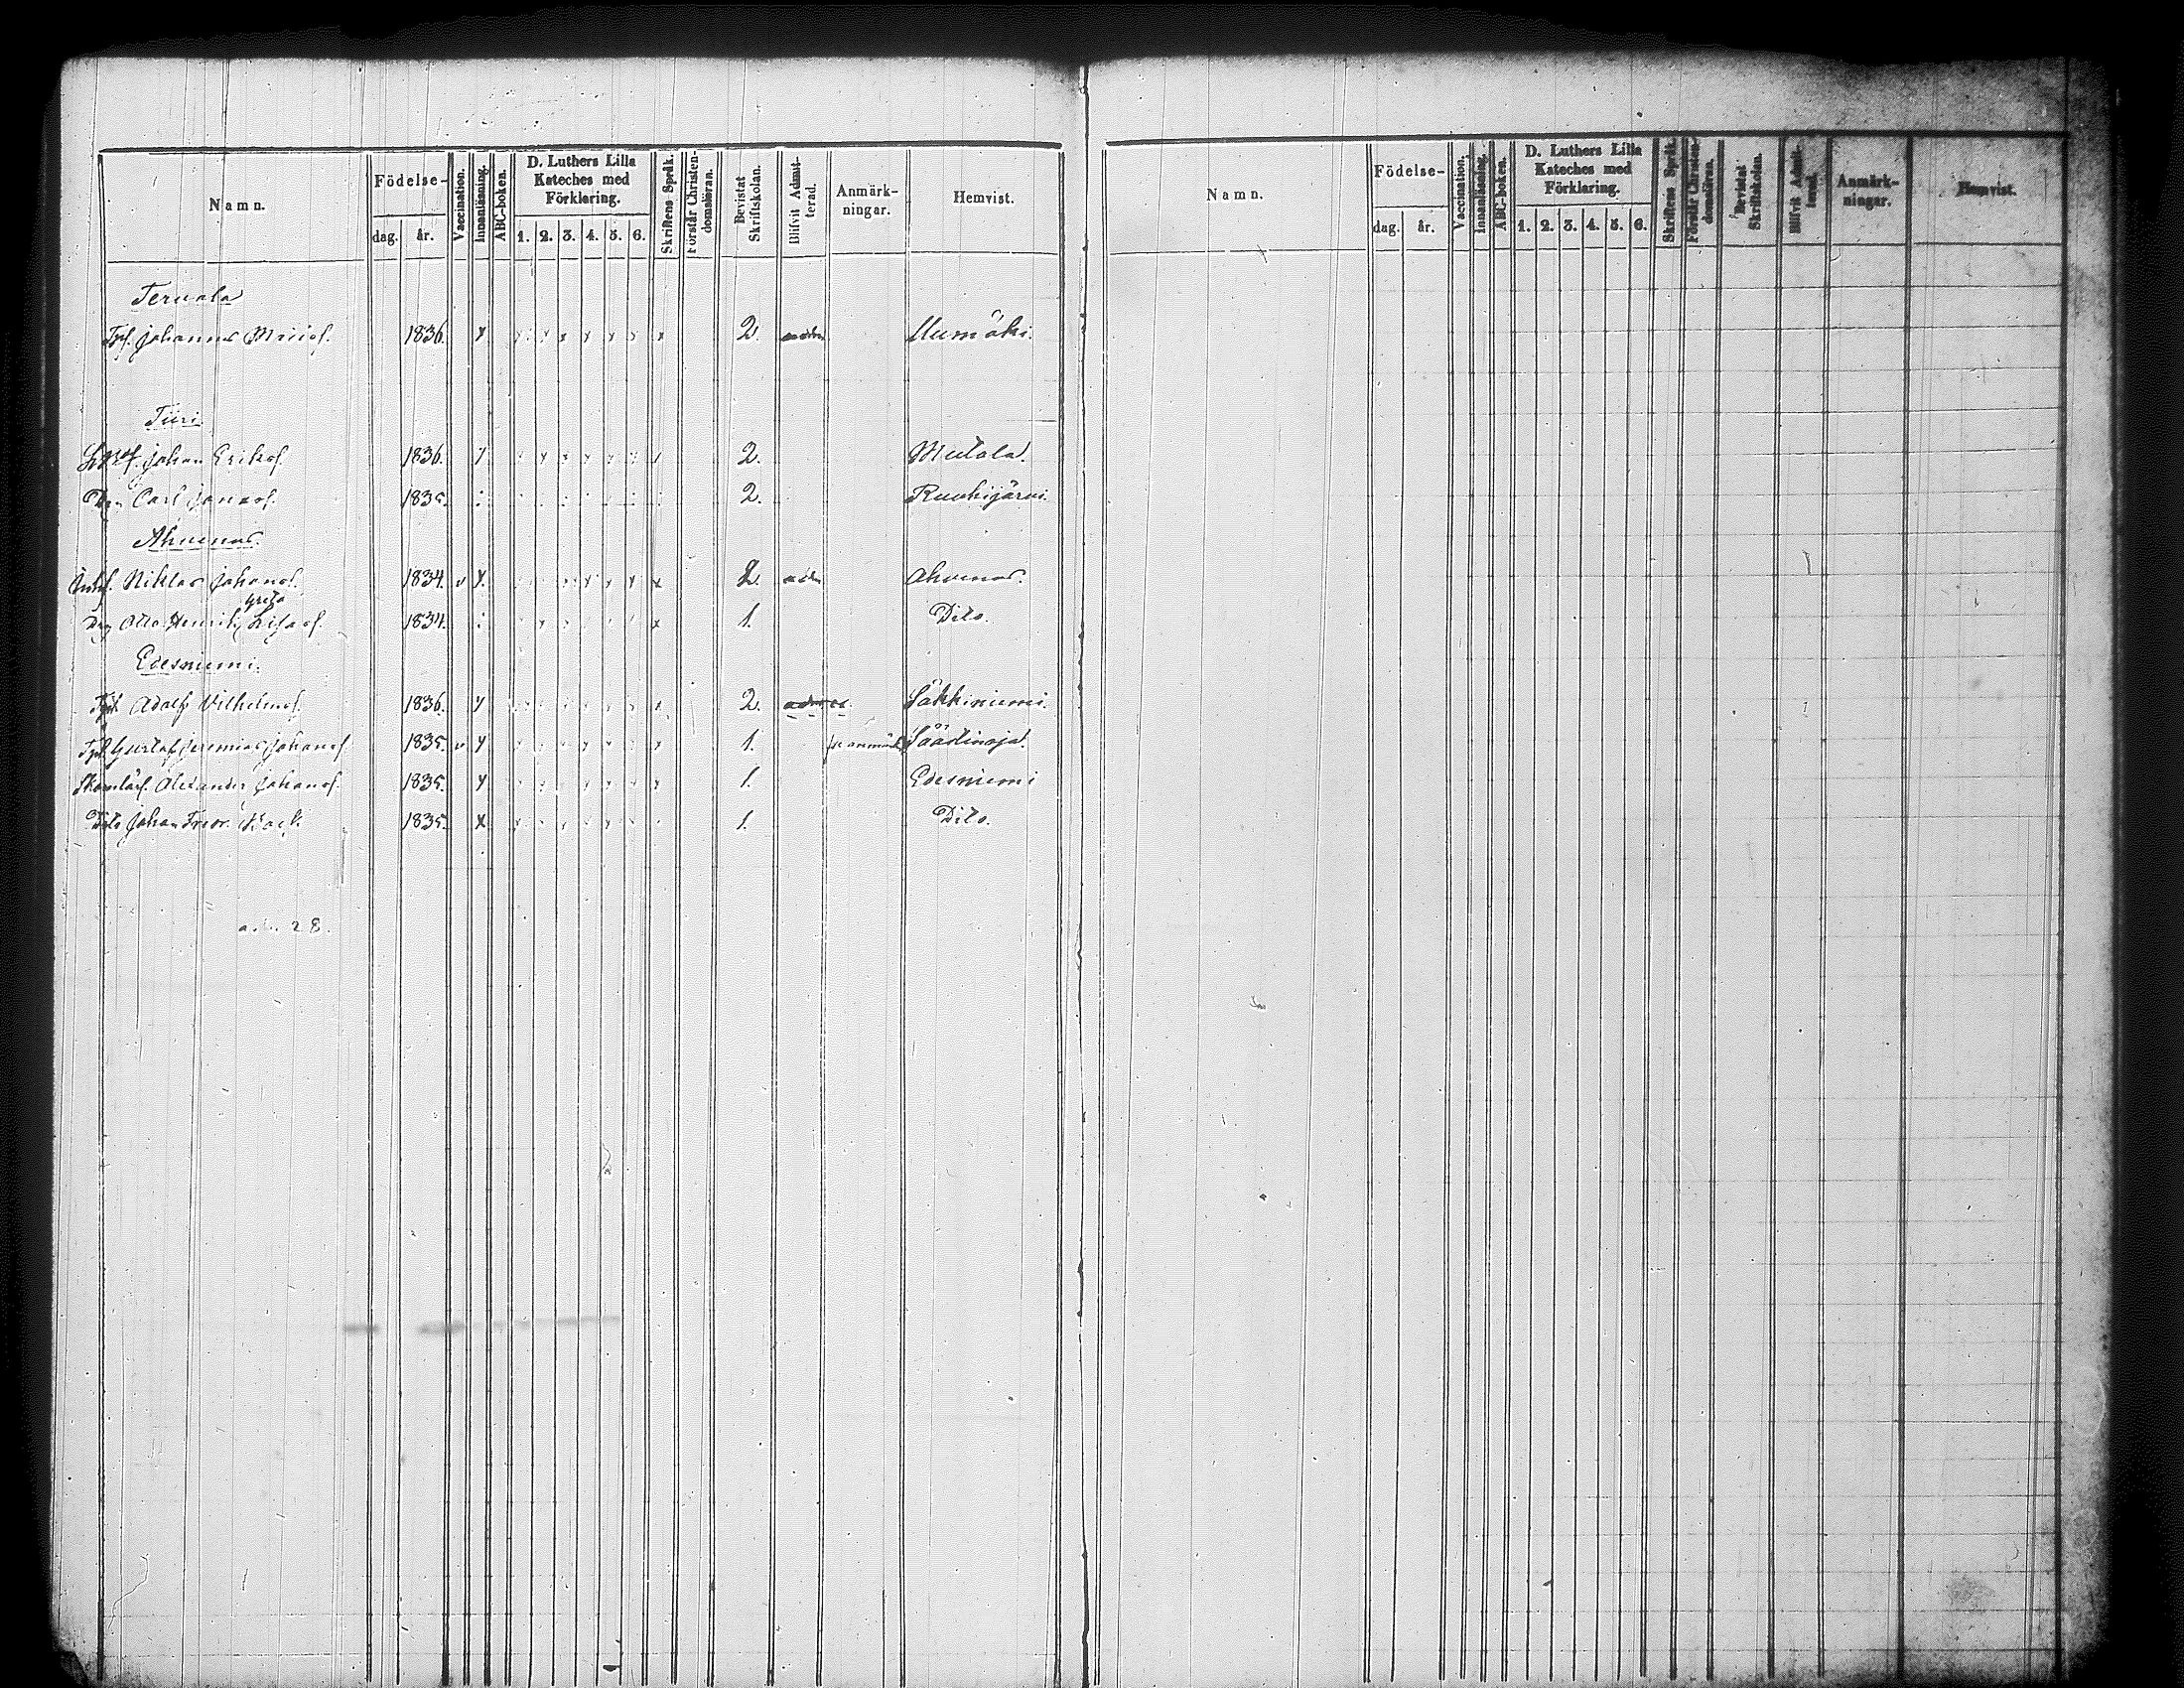 Namn.
Födelse-
dag. år.
Vaccination.
Innanläsning.
ABC-boken.
D. Luthers Lilla
Kateches med
Förklaring.
1. 2. 3. 4. 5. 6.
Skriftens Språk.
Förstår Christen-
domsläran.
Bevistat
Skriftskolan.
Blifvit Admit-
terad.
Anmärk-
ningar.
Hemvist.
Tervala
Johannes 1836. 2. Uumäki.
Tiiri
Johan Eriksf. 1836. 2. Mutala.
Carl Jonasf. 1835. 2. Ruuhijärvi.
Ahvenus.
Niklas Johansf. 1834. v 2. adm Ahvenus.
Greta
Otto Henrik Lisasf. 1834. 1. Dito.
Edesniemi.
Adolf Vilhelmsf. 1836. 2. Säkkiniemi.
Gustaf Jeremias Johansf. 1835. v 1. Säästinoja.
Alexander Johansf. 1835. 1. Edesniemi
Dito Johan Fredr. 1835. 1. Dito.
28.
Namn.
Födelse-
dag. år.
Vaccination.
Innanläsning.
ABC-boken.
D. Luthers Lilla
Kateches med
Förklaring.
1. 2. 3. 4. 5. 6.
Skriftens Språk.
Förstår Christen-
domsläran.
Bevistat
Skriftskolan.
Blifvit Admit-
terad.
Anmärk-
ningar.
Hemvist.